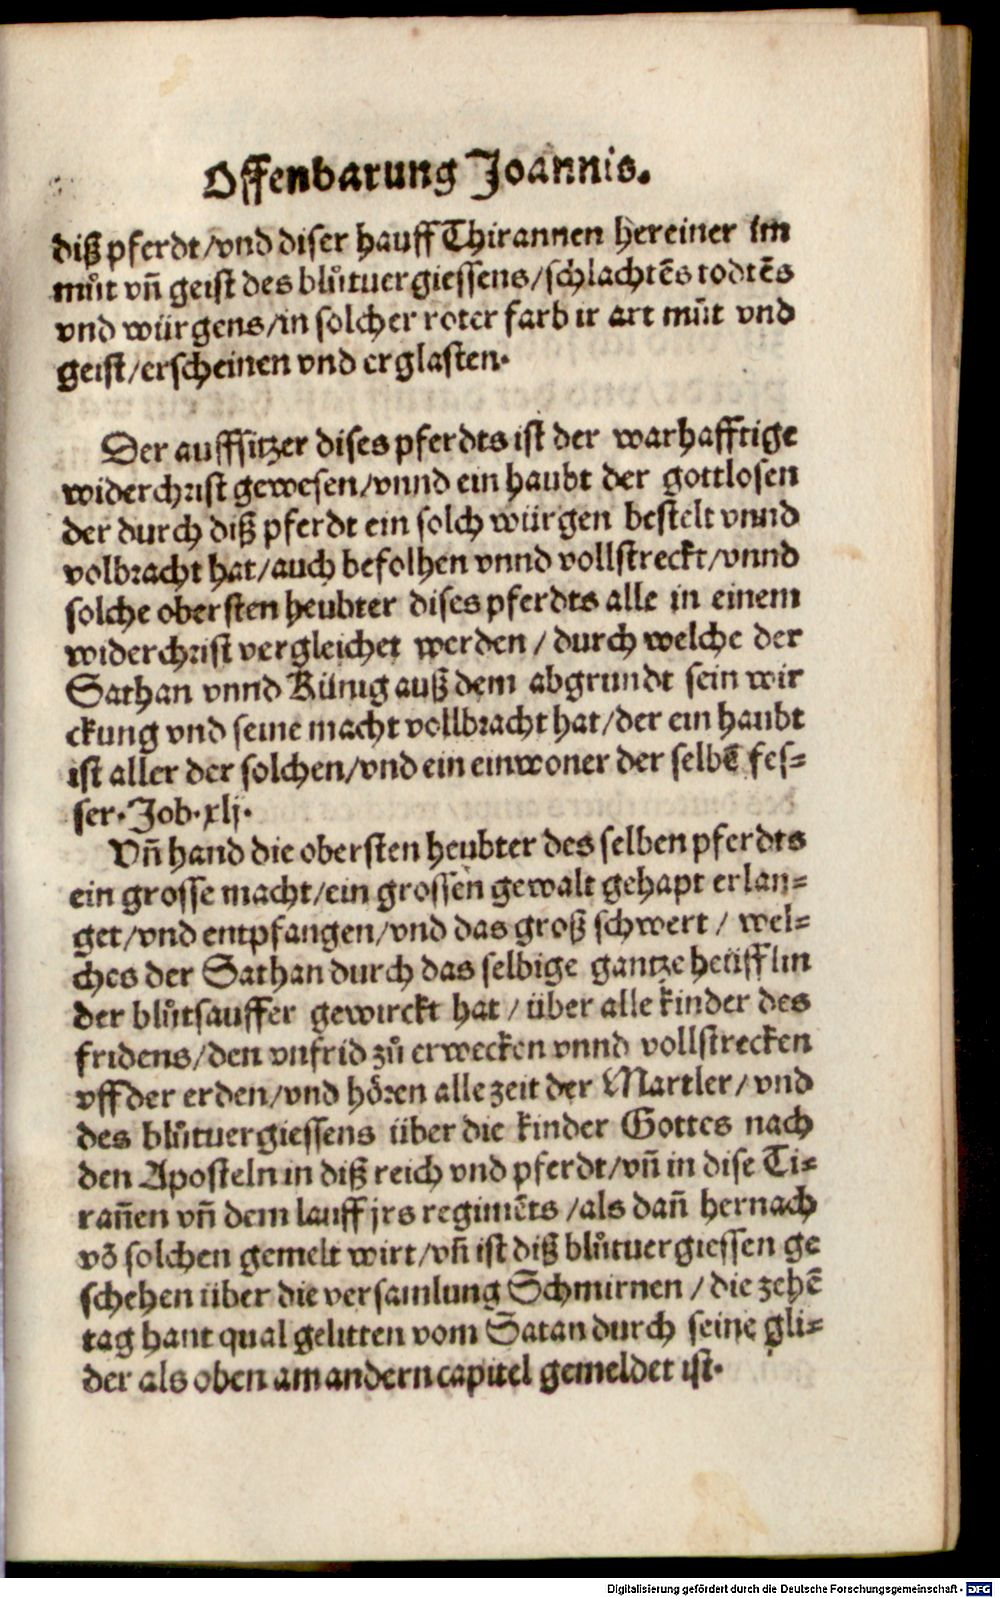 Offenbarung Joannis.
diß pferdt/vnd diser hauff Thirannen hereiner im
můt vñ geist des blůtuergiessens/schlachtẽs todtẽs
vnd würgens/in solcher roter farb ir art můt vnd
geist/erscheinen vnd erglasten.
Der auffsitzer dises pferdts ist der warhafftige
widerchrist gewesen/vnnd ein haubt der gottlosen
der durch diß pferdt ein solch würgen bestelt vnnd
volbracht hat/auch befolhen vnnd vollstreckt/vnnd
solche obersten heubter dises pferdts alle in einem
widerchrist vergleichet werden/durch welche der
Sathan vnnd Künig auß dem abgrundt sein wir
ckung vnd seine macht vollbracht hat/der ein haubt
ist aller der solchen/vnd ein einwoner der selbẽ fes-
ser. Job. xlj.
Vñ hand die obersten heubter des selben pferdts
ein grosse macht/ein grossen gewalt gehapt erlan-
get/vnd entpfangen/vnd das groß schwert/wel-
ches der Sathan durch das selbige gantze heüfflin
der blůtsauffer gewirckt hat/über alle kinder des
fridens/den vnfrid zů erwecken vnnd vollstrecken
vff der erden/vnd hören alle zeit der Martler/vnd
des blůtuergiessens über die kinder Gottes nach
den Aposteln in diß reich vnd pferdt/vñ in dise Ti-
rañen vñ dem lauff jrs regimẽts/als dañ hernach
võ solchen gemelt wirt/vñ ist diß blůtuergiessen ge
schehen über die versamlung Schmirnen/die zehẽ
tag hant qual gelitten vom Satan durch seine gli-
der als oben am andern capitel gemeldet ist.
Digitalisierung gefördert durch die Deutsche Forschungsgemeinschaft - DFG